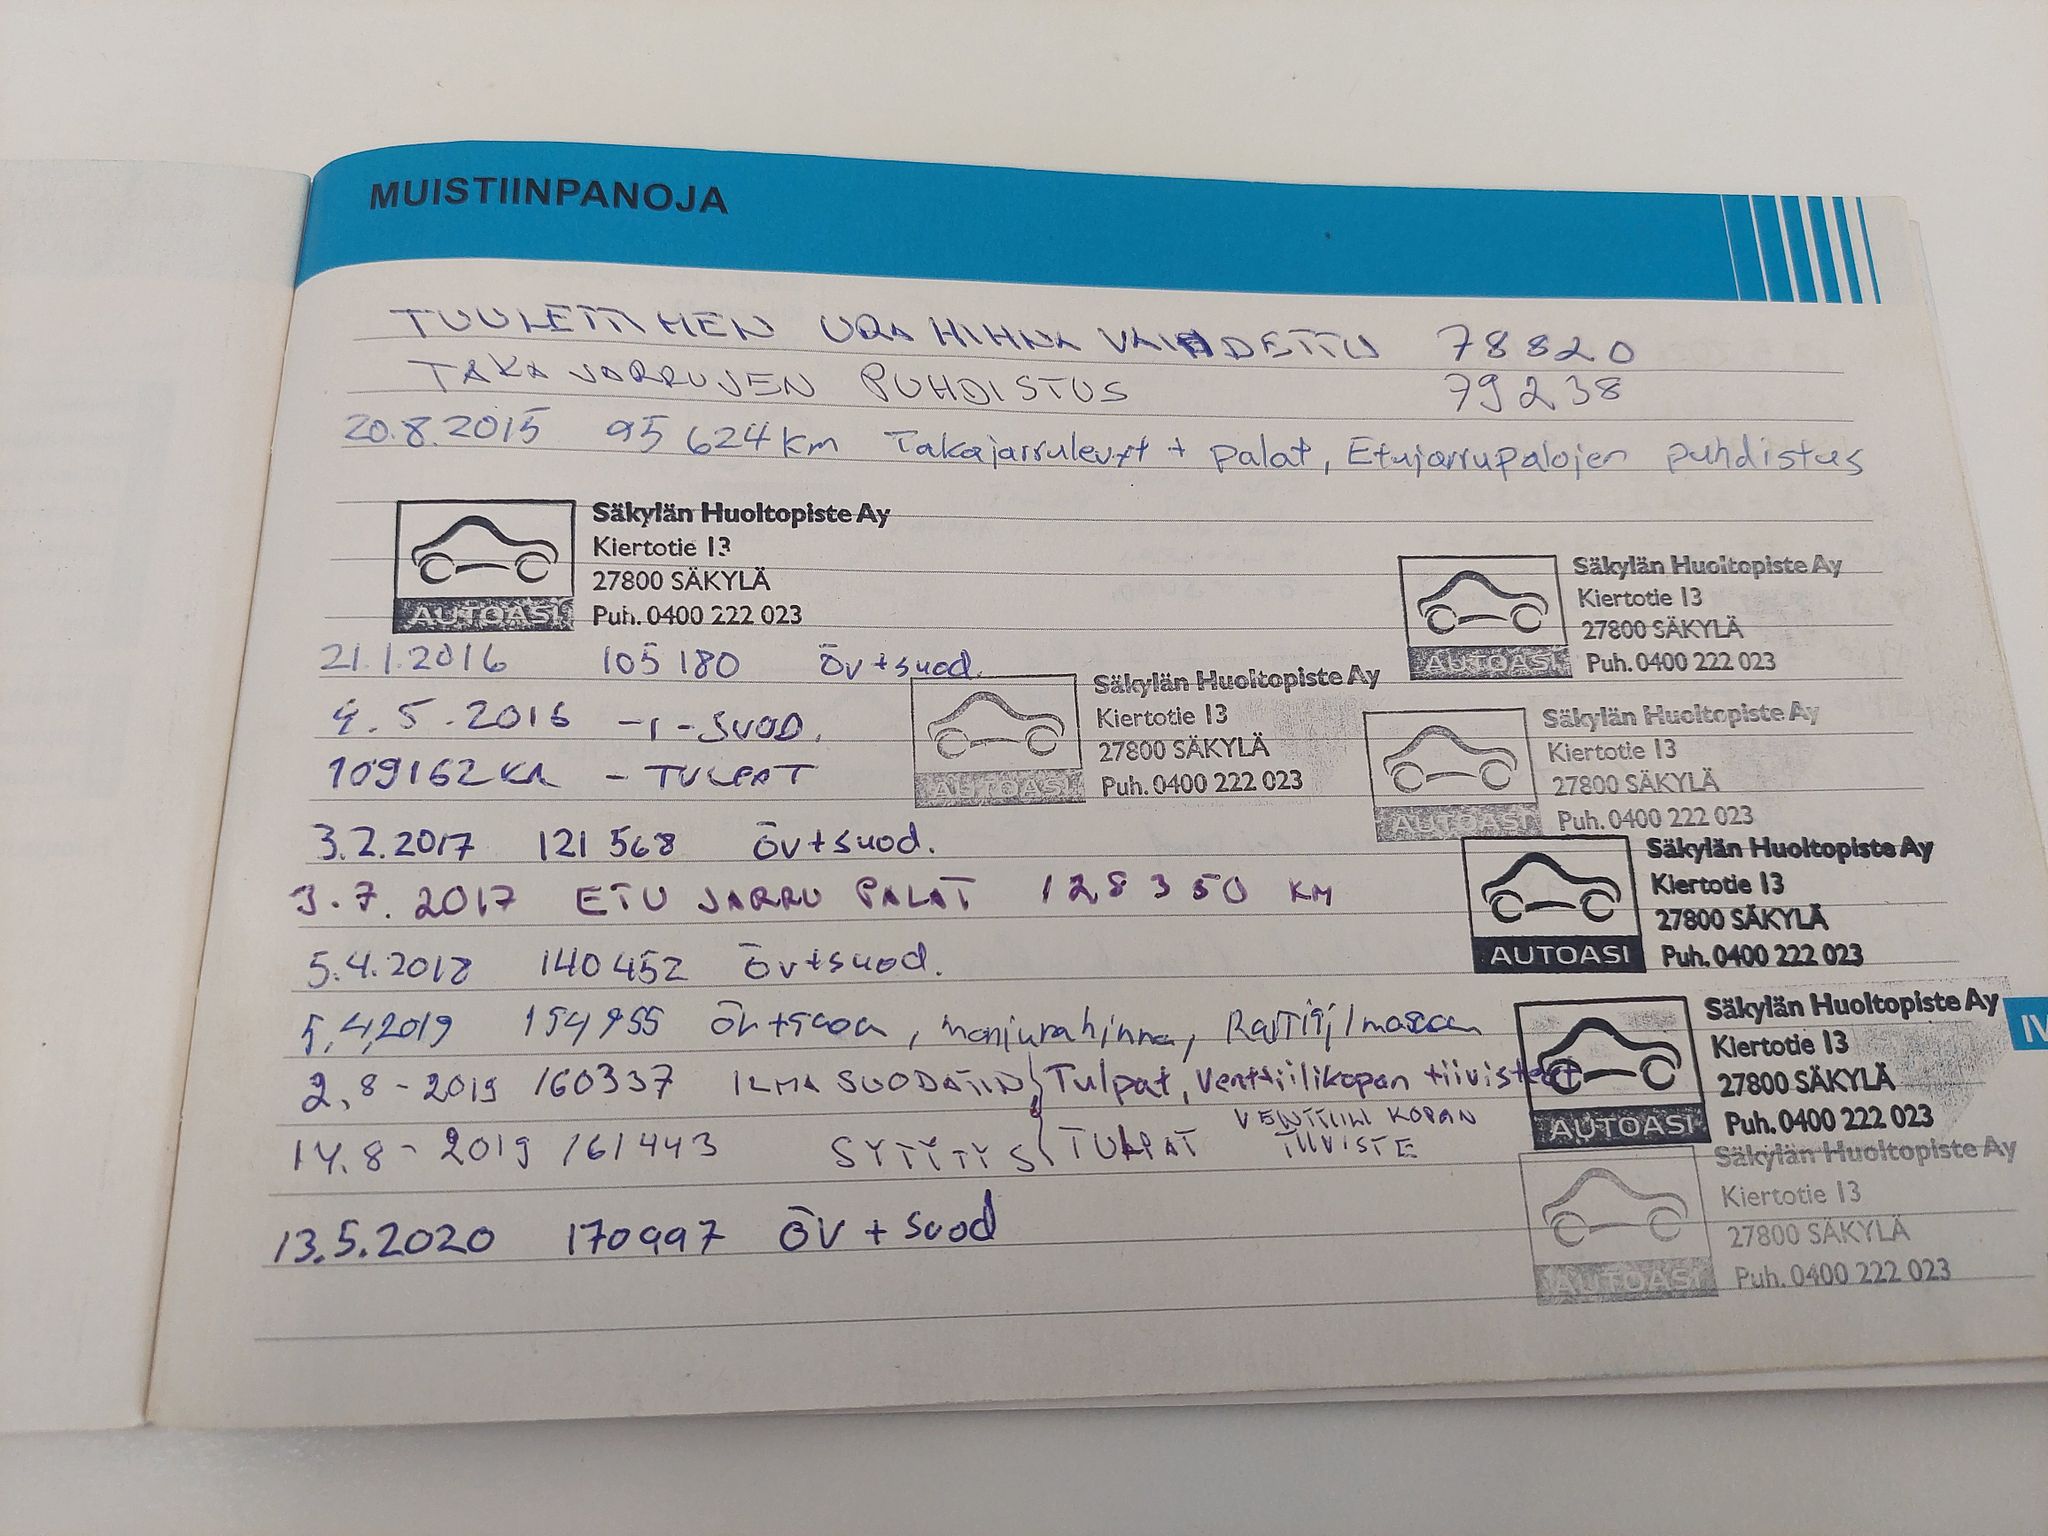 MUISTIINPANOJA
TUULETTIMEN URA HIHNA VAIHDETTU 78820
TAKA JARRUJEN PUHDISTUS 79238
20.8.2015 95 624 km Takajarrulevyt + palat, Etujarrupalojen puhdistus
Säkylän Huoltopiste Ay
Kiertotie 13
27800 SÄKYLÄ
AUTOASI Puh. 0400 222 023
Säkylän Huoltopiste Ay
Kiertotie 13
27800 SÄKYLÄ
AUTOASI Puh. 0400 222 023
21.1.2016 105 180 Öv+suod.
Säkylän Huoltopiste Ay
Kiertotie 13
27800 SÄKYLÄ
AUTOASI Puh. 0400 222 023
4.5.2016 -I-SUOD.
109162 KM - TULPAT
Säkylän Huoltopiste Ay
Kiertotie 13
27800 SÄKYLÄ
AUTOASI Puh. 0400 222 023
3.2.2017 121 568 Öv+suod.
3.7.2017 ETU JARRU PALAT 128350 KM
Säkylän Huoltopiste Ay
Kiertotie 13
27800 SÄKYLÄ
AUTOASI Puh. 0400 222 023
5.4.2018 140452 Öv+suod.
5.4.2019 154955
Säkylän Huoltopiste Ay
Kiertotie 13
27800 SÄKYLÄ
AUTOASI Puh. 0400 222 023
IV
2.8-2019 160337 ILMA SUODATIN Tulpat, Venttiilikopan tiivisteet
14.8-2019 161443 SYTYTYS TULPAT VENTTIILI KOPAN TIIVISTE
Säkylän Huoltopiste Ay
Kiertotie 13
27800 SÄKYLÄ
AUTOASI Puh. 0400 222 023
13.5.2020 170997 ÖV + suod